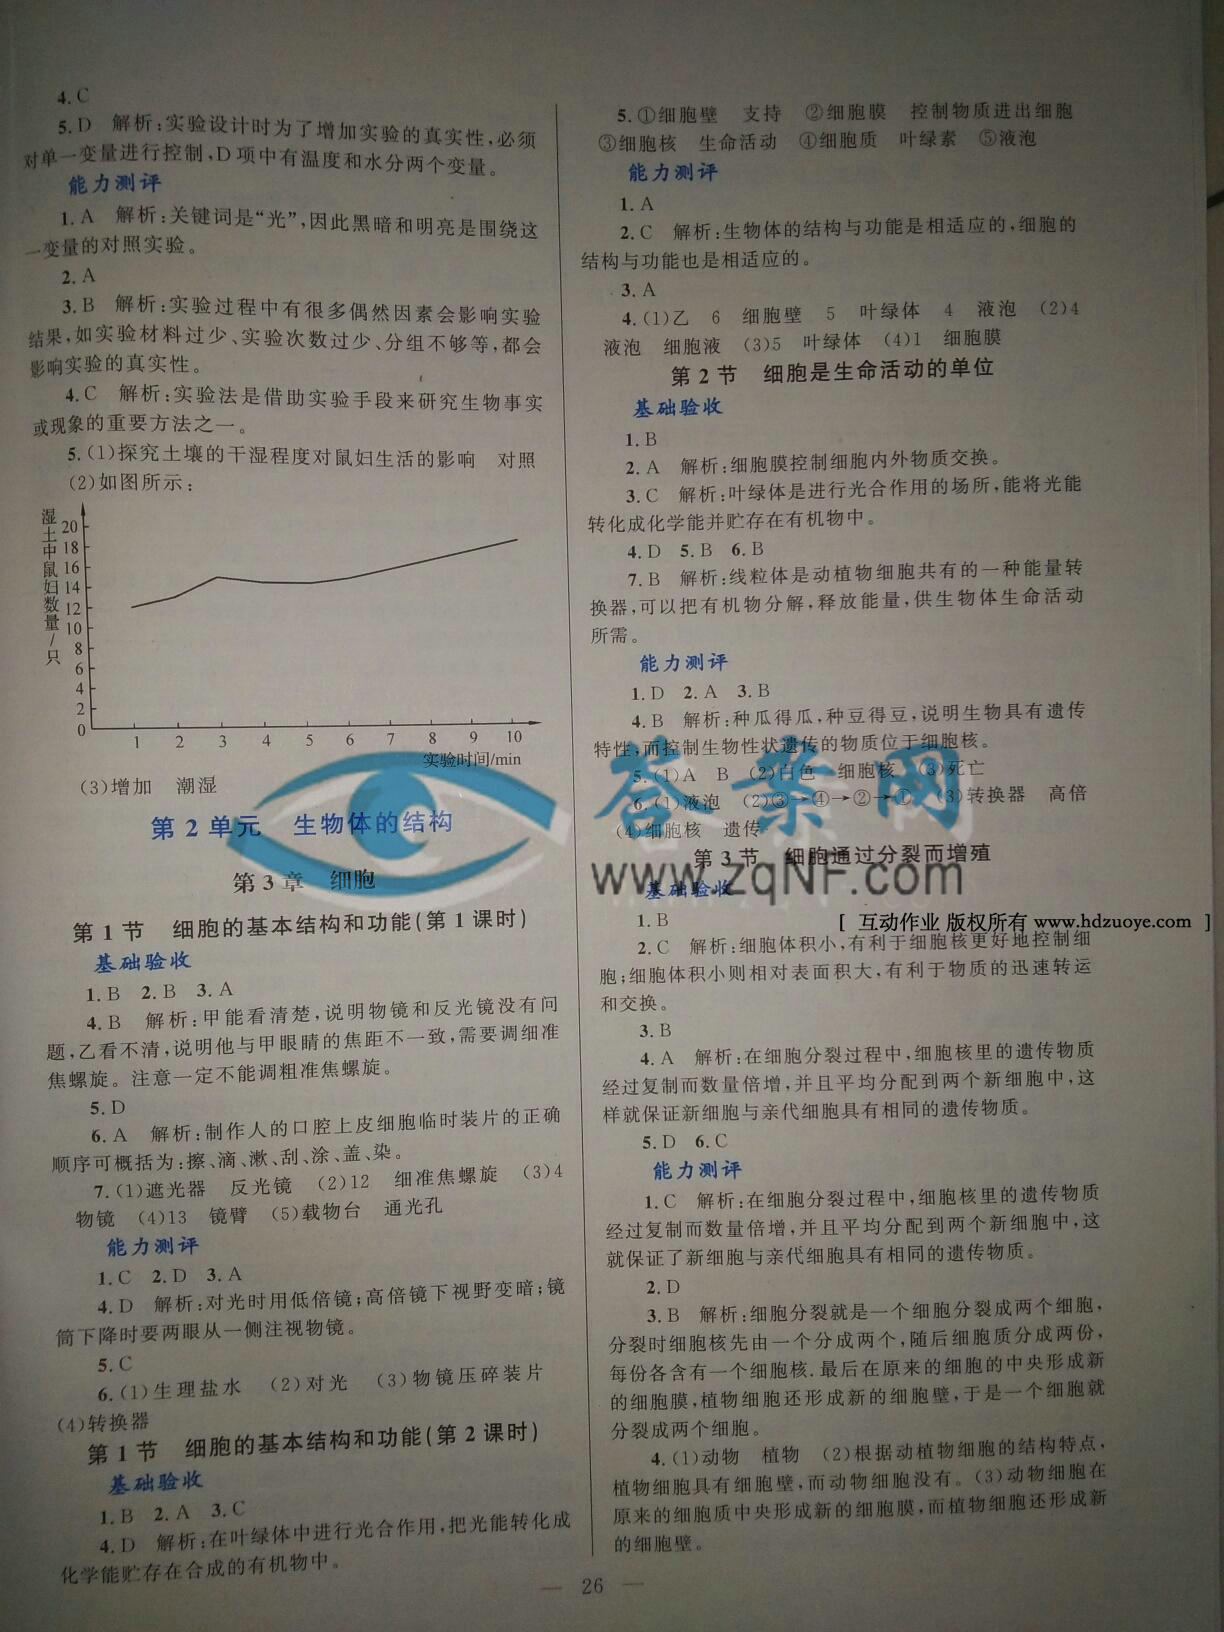 4. C
5. D 解析:实验设计时为了增加实验的真实性,必须
对单一变量进行控制,D 项中有温度和水分两个变量。
能力测评
1. A 解析:关键词是“光”,因此黑暗和明亮是围绕这
一变量的对照实验。
2. A
3. B 解析:实验过程中有很多偶然因素会影响实验
结果,如实验材料过少、实验次数过少、分组不够等,都会
影响实验的真实性。
4. C 解析:实验法是借助实验手段来研究生物事实
或现象的重要方法之一。
5. (1)探究土壤的干湿程度对鼠妇生活的影响 对照
(2)如图所示:
湿土中鼠妇数量/只
20
18
16
14
12
10
8
6
4
2
0
1 2 3 4 5 6 7 8 9 10
实验时间/min
(3)增加 潮湿
第 2 单元 生物体的结构
第 3 章 细胞
第 1 节 细胞的基本结构和功能(第 1 课时)
基础验收
1. B 2. B 3. A
4. B 解析:甲能看清楚,说明物镜和反光镜没有问
题,乙看不清,说明他与甲眼睛的焦距不一致,需要调细准
焦螺旋。注意一定不能调粗准焦螺旋。
5. D
6. A 解析:制作人的口腔上皮细胞临时装片的正确
顺序可概括为:擦、滴、漱、刮、涂、盖、染。
7. (1)遮光器 反光镜 (2)12 细准焦螺旋 (3)4
物镜 (4)13 镜臂 (5)载物台 通光孔
能力测评
1. C 2. D 3. A
4. D 解析:对光时用低倍镜;高倍镜下视野变暗;镜
筒下降时要两眼从一侧注视物镜。
5. C
6. (1)生理盐水 (2)对光 (3)物镜压碎装片
(4)转换器
第 1 节 细胞的基本结构和功能(第 2 课时)
基础验收
1. B 2. A 3. C
4. D 解析:在叶绿体中进行光合作用,把光能转化成
化学能贮存在合成的有机物中。
5. ①细胞壁 支持 ②细胞膜 控制物质进出细胞
③细胞核 生命活动 ④细胞质 叶绿素 ⑤液泡
能力测评
1. A
2. C 解析:生物体的结构与功能是相适应的,细胞的
结构与功能也是相适应的。
3. A
4. (1)乙 6 细胞壁 5 叶绿体 4 液泡 (2)4
液泡 细胞液 (3)5 叶绿体 (4)1 细胞膜
第 2 节 细胞是生命活动的单位
基础验收
1. B
2. A 解析:细胞膜控制细胞内外物质交换。
3. C 解析:叶绿体是进行光合作用的场所,能将光能
转化成化学能并贮存在有机物中。
4. D 5. B 6. B
7. B 解析:线粒体是动植物细胞共有的一种能量转
换器,可以把有机物分解,释放能量,供生物体生命活动
所需。
能力测评
1. D 2. A 3. B
4. B 解析:种瓜得瓜,种豆得豆,说明生物具有遗传
特性,而控制生物性状遗传的物质位于细胞核。
5. (1)A B (2)白色 细胞核 (3)死亡
6. (1)液泡 (2)③→④→②→① (3)转换器 高倍
(4)细胞核 遗传
第 3 节 细胞通过分裂而增殖
基础验收
1. B
2. C 解析:细胞体积小,有利于细胞核更好地控制细
胞;细胞体积小则相对表面积大,有利于物质的迅速转运
和交换。
3. B
4. A 解析:在细胞分裂过程中,细胞核里的遗传物质
经过复制而数量倍增,并且平均分配到两个新细胞中,这
样就保证新细胞与亲代细胞具有相同的遗传物质。
5. D 6. C
能力测评
1. C 解析:在细胞分裂过程中,细胞核里的遗传物质
经过复制而数量倍增,并且平均分配到两个新细胞中,这
就保证了新细胞与亲代细胞具有相同的遗传物质。
2. D
3. B 解析:细胞分裂就是一个细胞分裂成两个细胞,
分裂时细胞核先由一个分成两个,随后细胞质分成两份,
每份各含有一个细胞核.最后在原来的细胞的中央形成新
的细胞膜,植物细胞还形成新的细胞壁,于是一个细胞就
分裂成两个细胞。
4. (1)动物 植物 (2)根据动植物细胞的结构特点,
植物细胞具有细胞壁,而动物细胞没有。(3)动物细胞在
原来的细胞质中央形成新的细胞膜,而植物细胞还形成新
的细胞壁。
— 26 —
答案网
www.zqNF.com
[ 互动作业 版权所有 www.hdzuoye.com ]